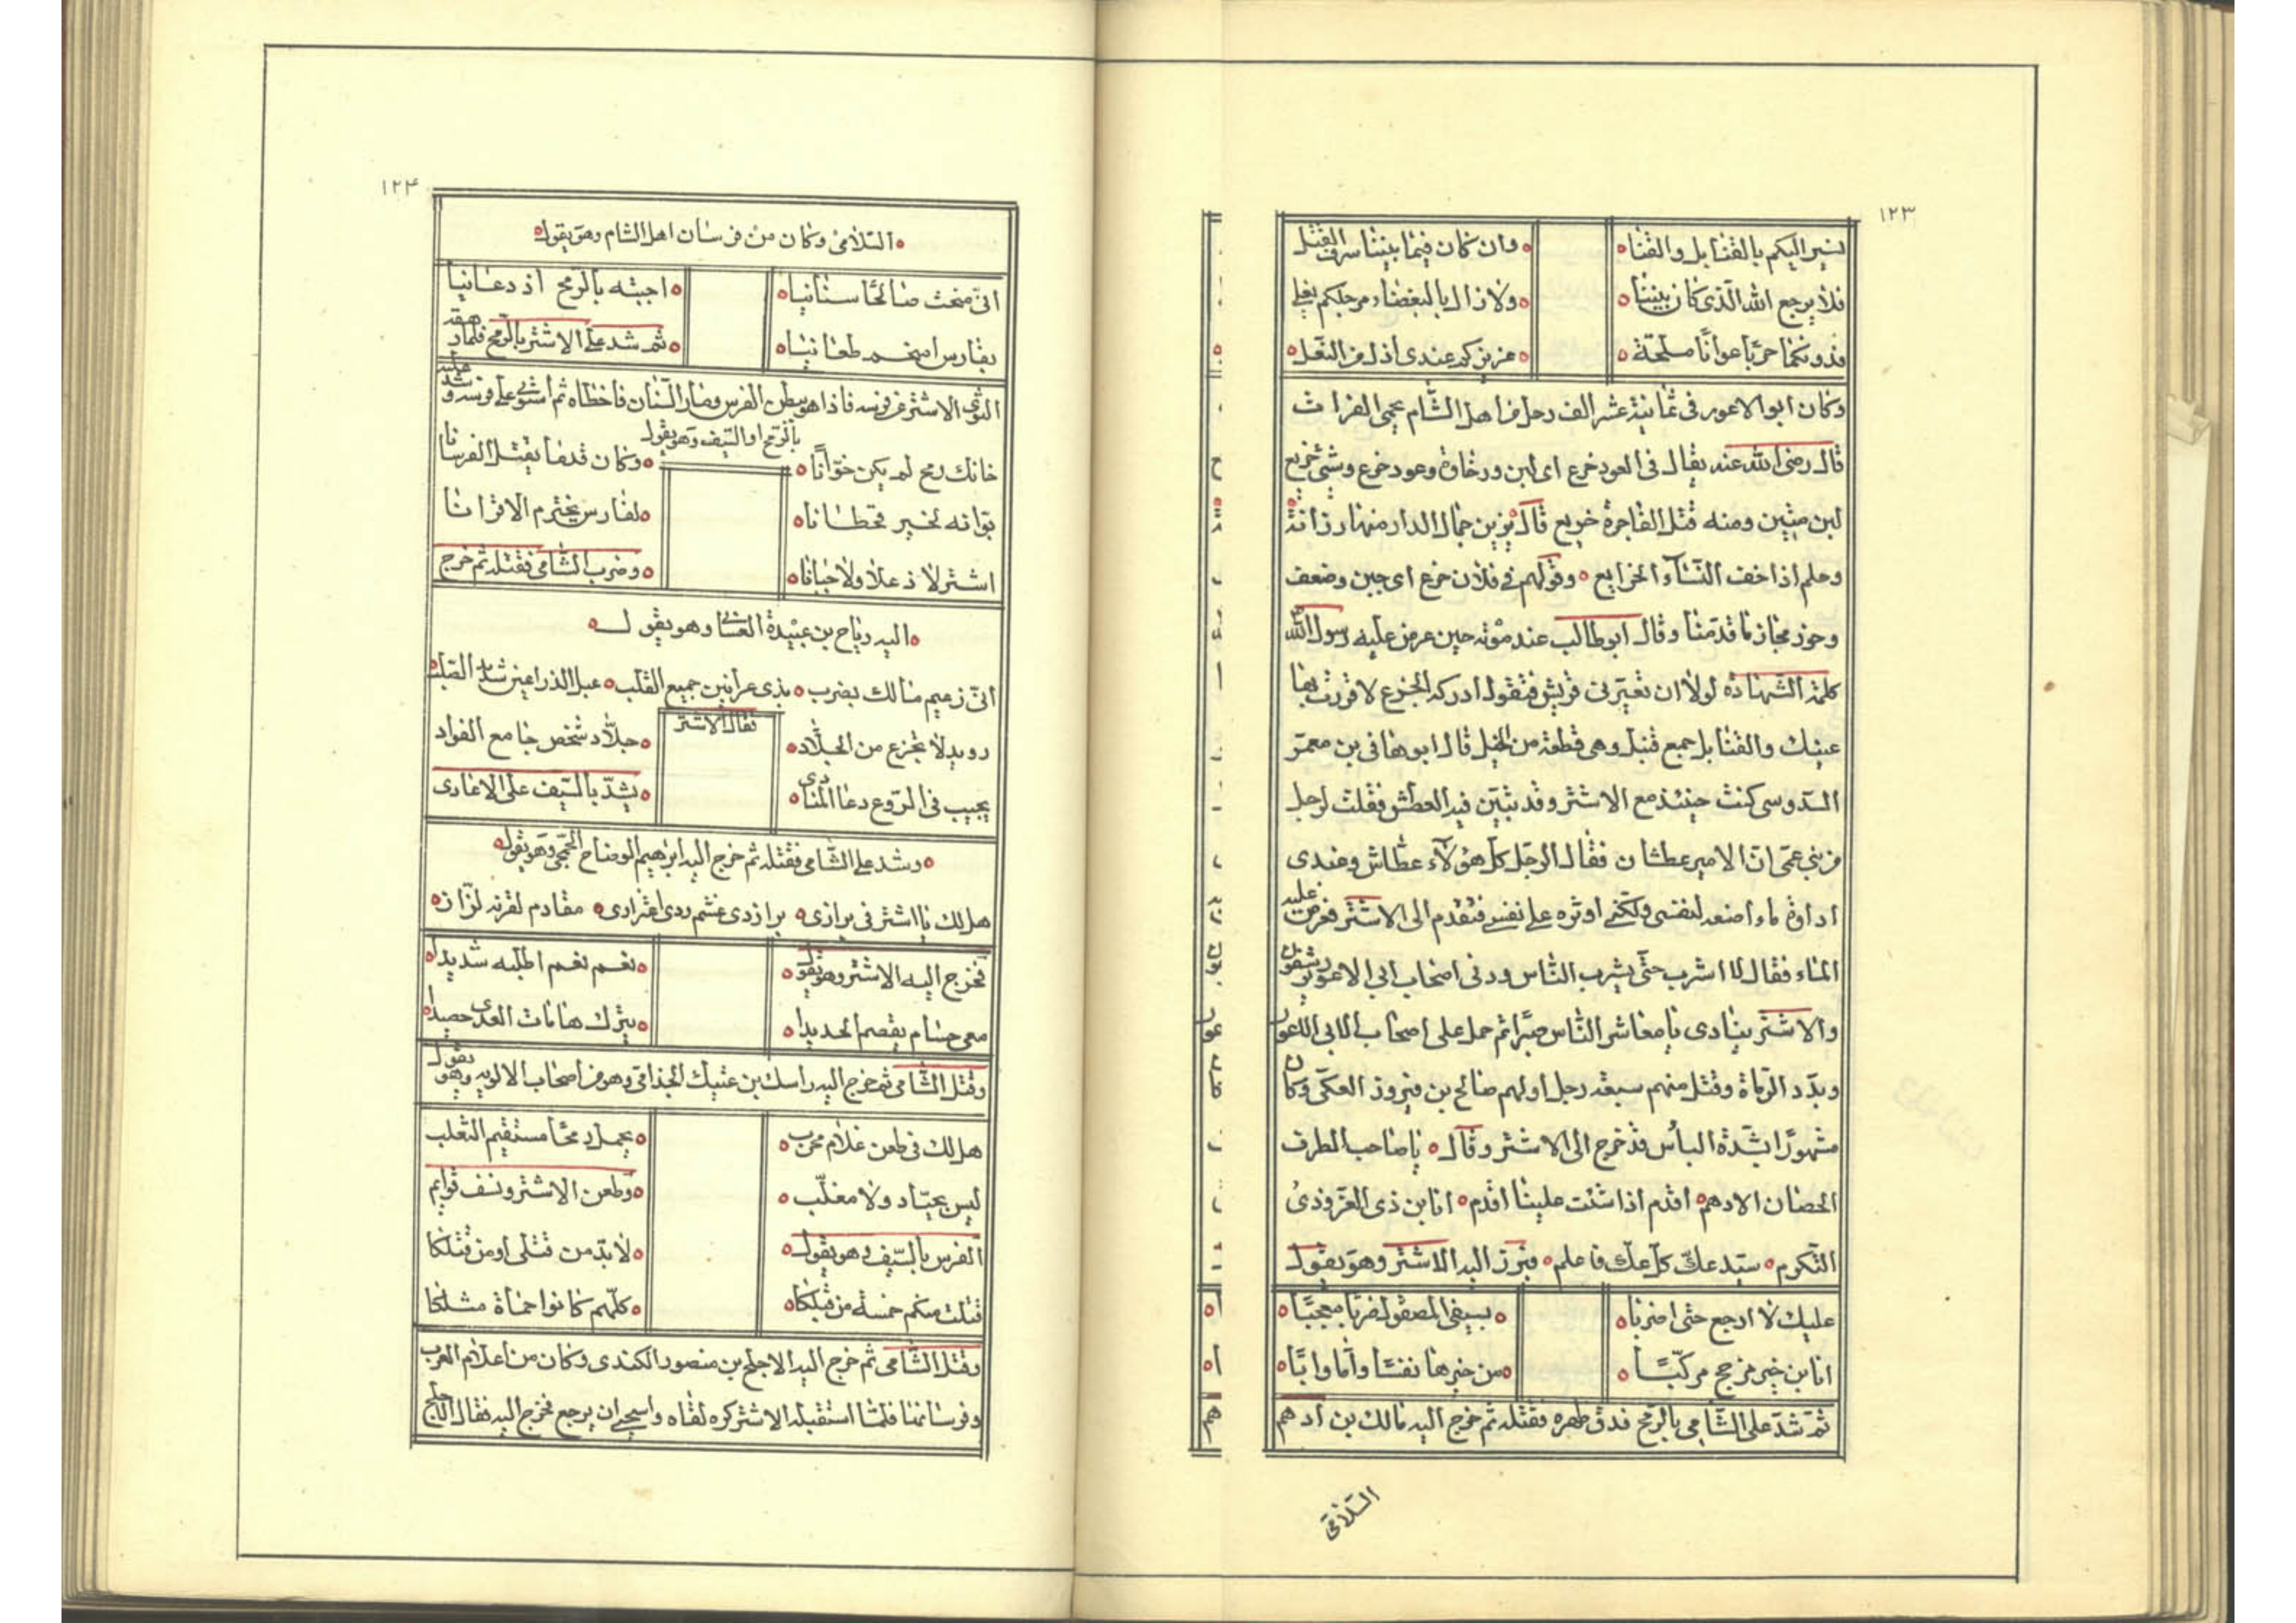 ١٢٣
نسير اليكم بالقنابل والقنا ه وان كان فيما بيننا سرف القتل
فلا يرجع الله الذي كان بيننا ه ولا زال بالبغضاء مرجلكم يغلي
فدونكما حربا عوانا ملحة ه عزيزكم عندي اذل من النعل ه
وكان ابو الاعور في ثمانية عشر الف رجل من اهل الشام يحمي الفرات
قال رضي الله عنه يقال في العود خرع اي لين ورخاوة وعود خرع وشئ خريع
لين متين ومنه قيل الفاجرة خريع قال يزين جمال الدار منها رزانة ه
وحلم اذا خف النساء الخرايع ه وقولهم في فلان خرع اي جبن وضعف
وخور مجاز ما قدمنا وقال ابوطالب عند موته حين عرض عليه رسول الله
كلمة الشهادة لولا ان تعيرني قريش فتقول ادركه الخزع لاقررت بها
عينك والقنابل جمع قنبل وهي قطعة من الخيل قال ابو هاني بن معمر
السدوسي كنت حينئذ مع الاشتر وقد تبين فيه العطش فقلت لرجل
من بني عمي ان الامير عطشان فقال الرجل كل هؤلاء عطاش وعندي
اداوة ماء امنعه لنفسي ولكني اوثره على نفسي فتقدم الى الاشتر فعرض عليه
الماء فقال لا اشرب حتى يشرب الناس ودنى اصحاب ابي الاعور يرشقون
والاشتر ينادي يا معاشر الناس صبرا ثم حمل على اصحاب ابي الاعور
وبدد الرماة وقتل منهم سبعة رجل اولهم صالح بن فيروز العكي وكان
مشهورا بشدة البأس قد خرج الى الاشتر وقال ه يا صاحب الطرف
الحصان الادهم ه اقدم اذا شئت علينا اقدم ه انا بن ذي العز وذي
التكرم ه سيد عك كل عك فاعلم ه فبرز اليه الاشتر وهو يقول
عليك لا ارجع حتى اضربا ه بسيفي المصقول ضربا معجبا ه
انا بن خير مذحج مركبا ه من خيرها نفسا واما وابا ه
ثم شد على الشامي بالرمح فدق ظهره فقتله ثم خرج اليه مالك بن ادهم
السلامي
١٢۴
ه السلامي وكان من فرسان اهل الشام وهو يقول ه
اني منحت صالحا سنانيا ه اجبته بالرمح اذ دعانيا
بفارس امنحه طعانيا ه ثم شد على الاشتر بالرمح فلما رهقه
التوى الاشتر عن فرسه فاذا هو ببطن الفرس وصار السنان فاخطاه ثم استوى على فرسه وشد عليه
بالرمح او السيف وهو يقول
خانك رمح لم يكن خوانا ه وكان قدما يقتل الفرسانا
بوانه لخير قحطانا ه لفارس يخترم الاقرانا
اشتر لا ذعلا ولا جبانا ه وضرب الشامي فقتله ثم خرج
ه اليه رياح بن عبيدة الغساني وهو يقول ه
اني زعيم مالك بضرب ه بذي عرانين جميع القلب ه عبل الذراعين شديد الصلب
فقال الاشتر
رويد لا تجزع من الجلاد ه جلاد شخص جامع الفواد
يجيب في الروع دعا المنادي ه يشد بالسيف على الاعادي
ه وشد على الشامي فقتله ثم خرج اليه ابرهيم الوضاح الجمحي وهو يقول ه
هل لك يا اشتر في برازي ه براز ذي غشم وذي اغترازي ه مقادم لقرنه لزاز ه
فخرج اليه الاشتر وهو يقول ه نعم نعم اطلبه شديدا ه
معي حسام يقصم الحديدا ه يترك هامات العدى حصيدا ه
وقتل الشامي ثم خرج اليه راسك بن عتيك الجذامي وهو من اصحاب الالوية وهو يقول
هل لك في طعن غلام محرب ه يحمل رمحا مستقيم الثعلب
ليس بحياد ولا مغلب ه وطعن الاشتر ونسف قوايم
الفرس بالسيف وهو يقول ه لا بد من قتلي او من قتلكا
قتلت منكم خمسة من قبلكا ه كلهم كانوا حماة مثلكا
وقتل الشامي ثم خرج اليه الاجلح بن منصور الكندي وكان من اعلام العرب
وفرسانها فلما استقبله الاشتر كره لقاه واستحيى ان يرجع فخرج اليه فقال الاجلح